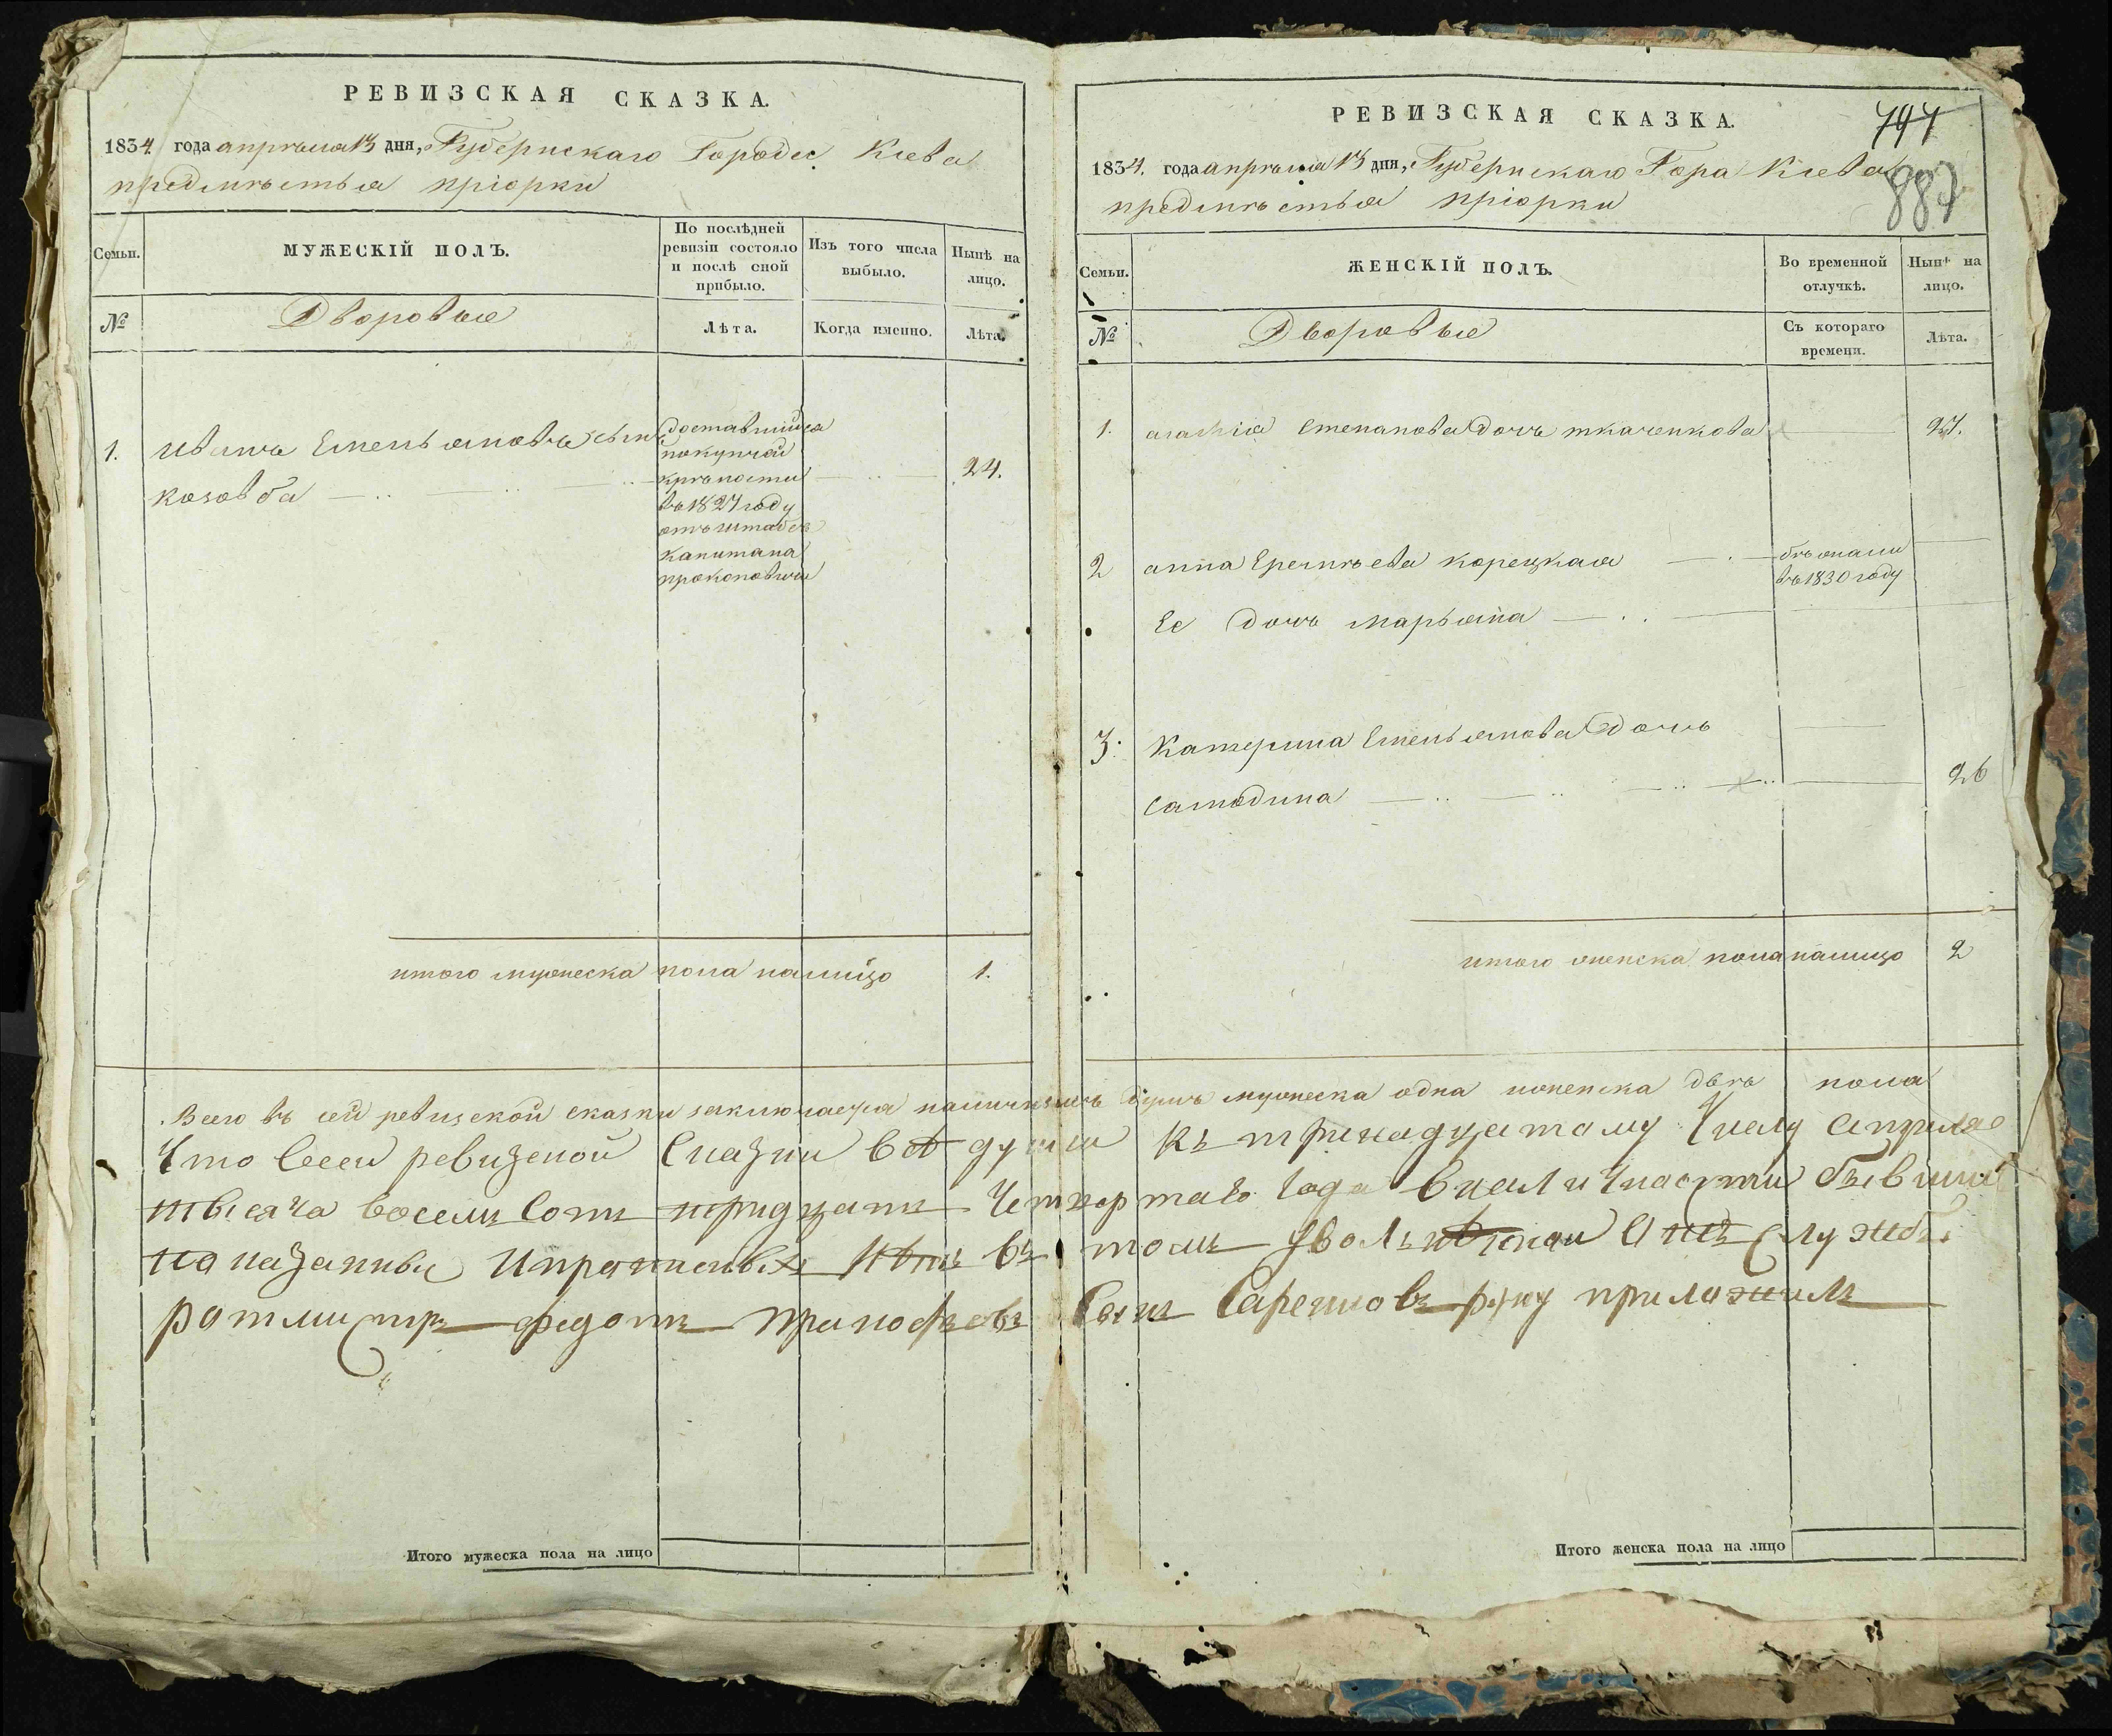 РЕВИЗСКАЯ СКАЗКА.
1834. года апрѣля 13 дня, Губернскаго Города Кіева
предмѣстья пріорки
Семьи.
МУЖЕСКІЙ ПОЛЪ.
По послѣдней ревизіи состояло и послѣ оной прибыло.
Изъ того числа выбыло.
Нынѣ на лицо.
№
Дворовые
Лѣта.
Когда именно.
Лѣта.
1. иванъ Емельяновъ сынъ
козовба
доставшийся
покупчай
крѣпости
въ 1827 году
отъ штабсъ
капитана
прокоповича
24.
итого мужеска пола налицо 1.
РЕВИЗСКАЯ СКАЗКА.
747
887
1834. года апрѣля 13 дня, Губернскаго Гора Кіева
предмѣстья пріорки
Семьи.
ЖЕНСКІЙ ПОЛЪ.
Во временной отлучкѣ.
Нынѣ на лицо.
№
Дворовые
Съ котораго времени.
Лѣта.
1. агафія степанова дочь ткаченкова 27.
2 анна Еремѣева корецкая
бѣжали
въ 1830 году
Ее дочь марьяна
3. Катерина Емельянова дочь
самодина 26
итого женска пола налицо 2
Всего въ сей ревизской сказки заключается наличныхъ душъ мужеска одна иженска двѣ пола
Что всеи ревизской Сказки всѣ души къ тринадцатому Числу апреля
тысяча восемь Сотъ тридцать Четвертаго года вналичности бывши
показанны Ипрописныхъ Нѣтъ въ томъ уволънѣной Отъ службѣ
ротмистръ федотъ прокофъевъ Сынъ Саренковъ руку приложилъ
Итого мужеска пола на лицо
Итого женска пола на лицо